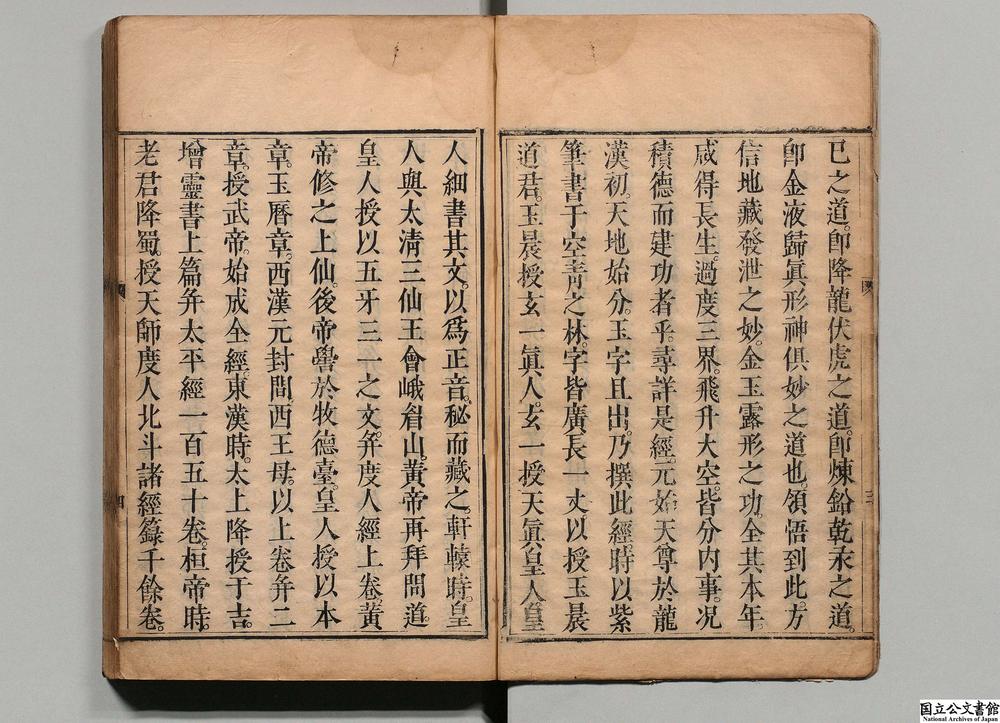 已之道。卽降龍伏虎之道。卽煉鉛乾汞之道。
卽金液歸眞形神俱妙之道也。領悟到此。方
信地藏發泄之妙。金玉露形之功。全其本年。
咸得長生。過度三界。飛升大空。皆分內事。況
積德而建功者乎。尋詳是經。元始天尊於龍
漢初。天地始分。玉字且出。乃撰此經。時以紫
筆書于空靑之林。字皆廣長一丈。以授玉晨
道君。玉晨授玄一眞人。玄一授天眞皇人。皇
人細書其文。以爲正音。秘而藏之。軒轅時。皇
人與太淸三仙王會峨眉山。黃帝再拜問道。
皇人授以五牙三一之文。弁度人經上卷。黃
帝修之上仙。後帝嚳於牧德臺。皇人授以本
章。玉曆章。西漢元封間。西王母。以上卷弁二
章。授武帝。始成全經。東漢時。太上降授于吉。
增靈書上篇弁太平經一百五十卷。桓帝時。
老君降蜀。授天師度人北斗諸經籙千餘卷。
三
四
国立公文書館
National Archives of Japan